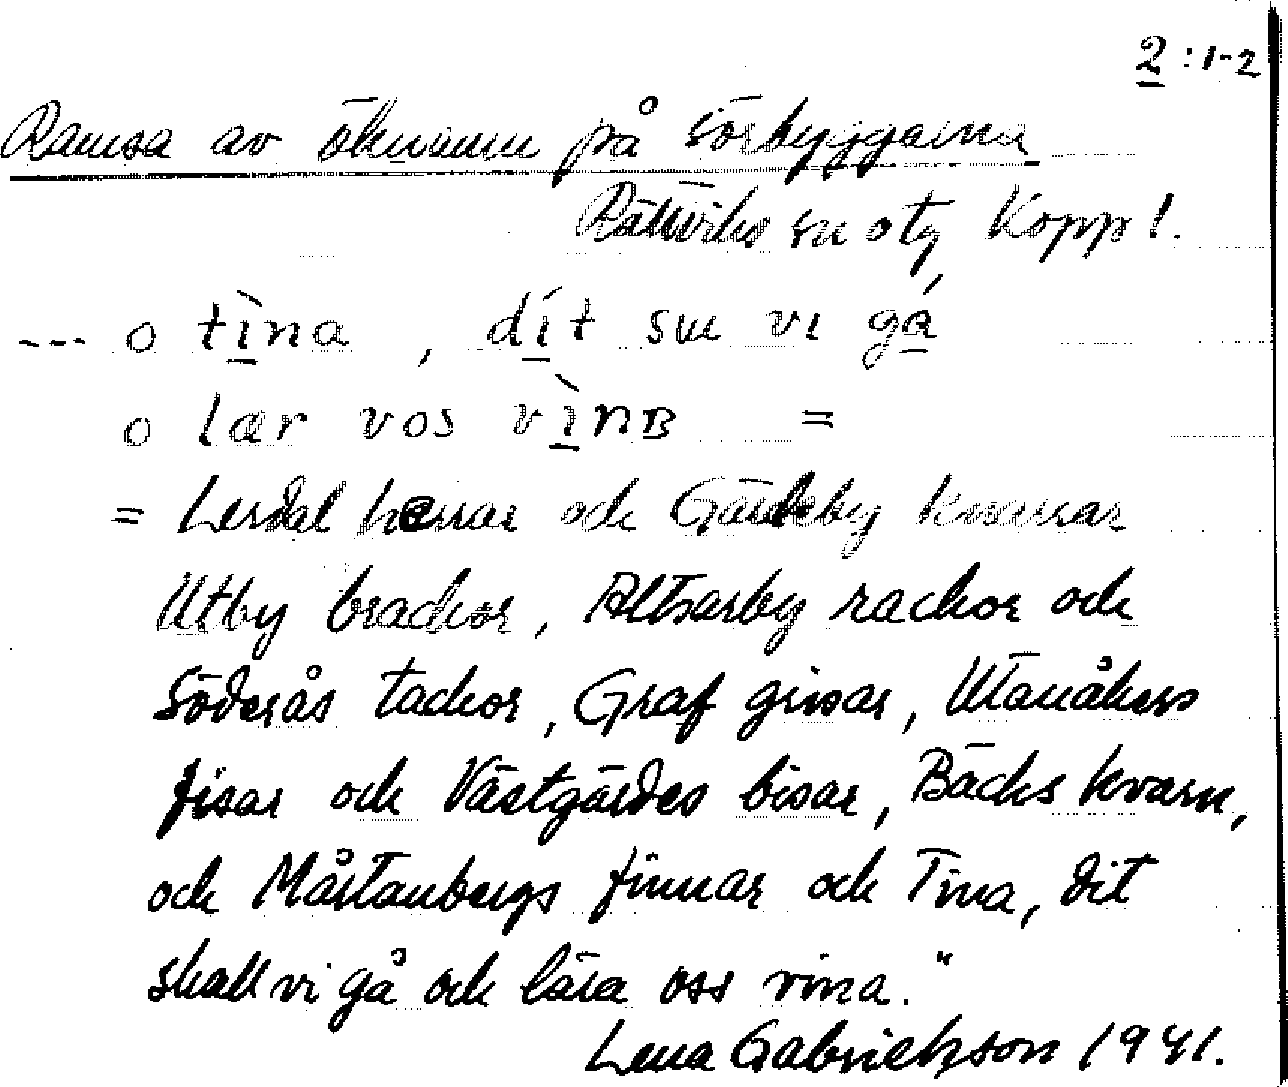 2:1-2
Ramsa av öknamn på Sörbyggarna
Rättviks sn oty Kopp!.
--- o tìna, dít su vi gá
o lær vos vìnʙ =
= Lerdal herrar och Gärdeby knarrar
Utby brackor, Altsarby rackor och
Söderås tackor, Graf grisar, Utanåkers
fisar och Västgärdes bisar, Bäcks kvarn,
och Mårtanbergs finnar och Tina, dit
skall vi gå och lära oss vina."
Lena Gabrielsson 1941.